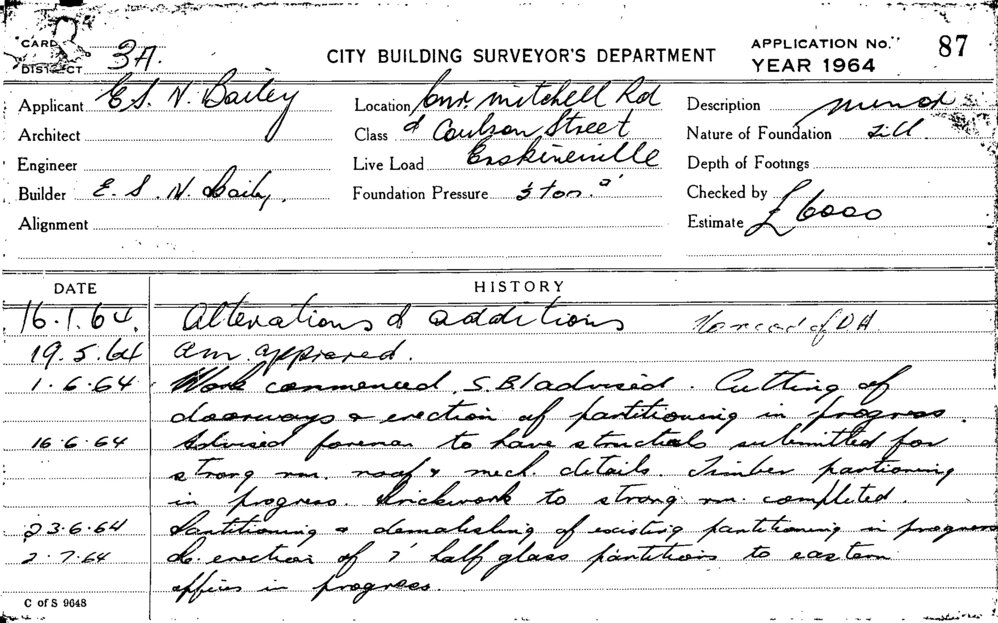 CARD
DISTRICT 3A.
CITY BUILDING SURVEYOR'S DEPARTMENT
APPLICATION No. 87
YEAR 1964
Applicant E S. N. Bailey
Location Cnr. Mitchell Rd
Description minor
Architect
Class & Coulson Street
Nature of Foundation fill
Engineer
Live Load Erskineville
Depth of Footings
Builder E. S. N. Baily.
Foundation Pressure ton
Checked by
Alignment
Estimate £6000
DATE
HISTORY
16.1.64. Alterations & additions of DA
19.5.64 am. approved.
1.6.64 Work commenced S.B. advised. Cutting of
doorways & erection of partitioning in progress.
16.6.64 Advised foreman to have structurals submitted for
strong rm. roof & mech. details. Timber partioning
in progress. Brickwork to strong rm. completed.
23.6.64 Partitioning & demolishing of existing partitioning in progress
2.7.64 do. erection of 7' half glass partitions to eastern
offices in progress.
C of S 9648